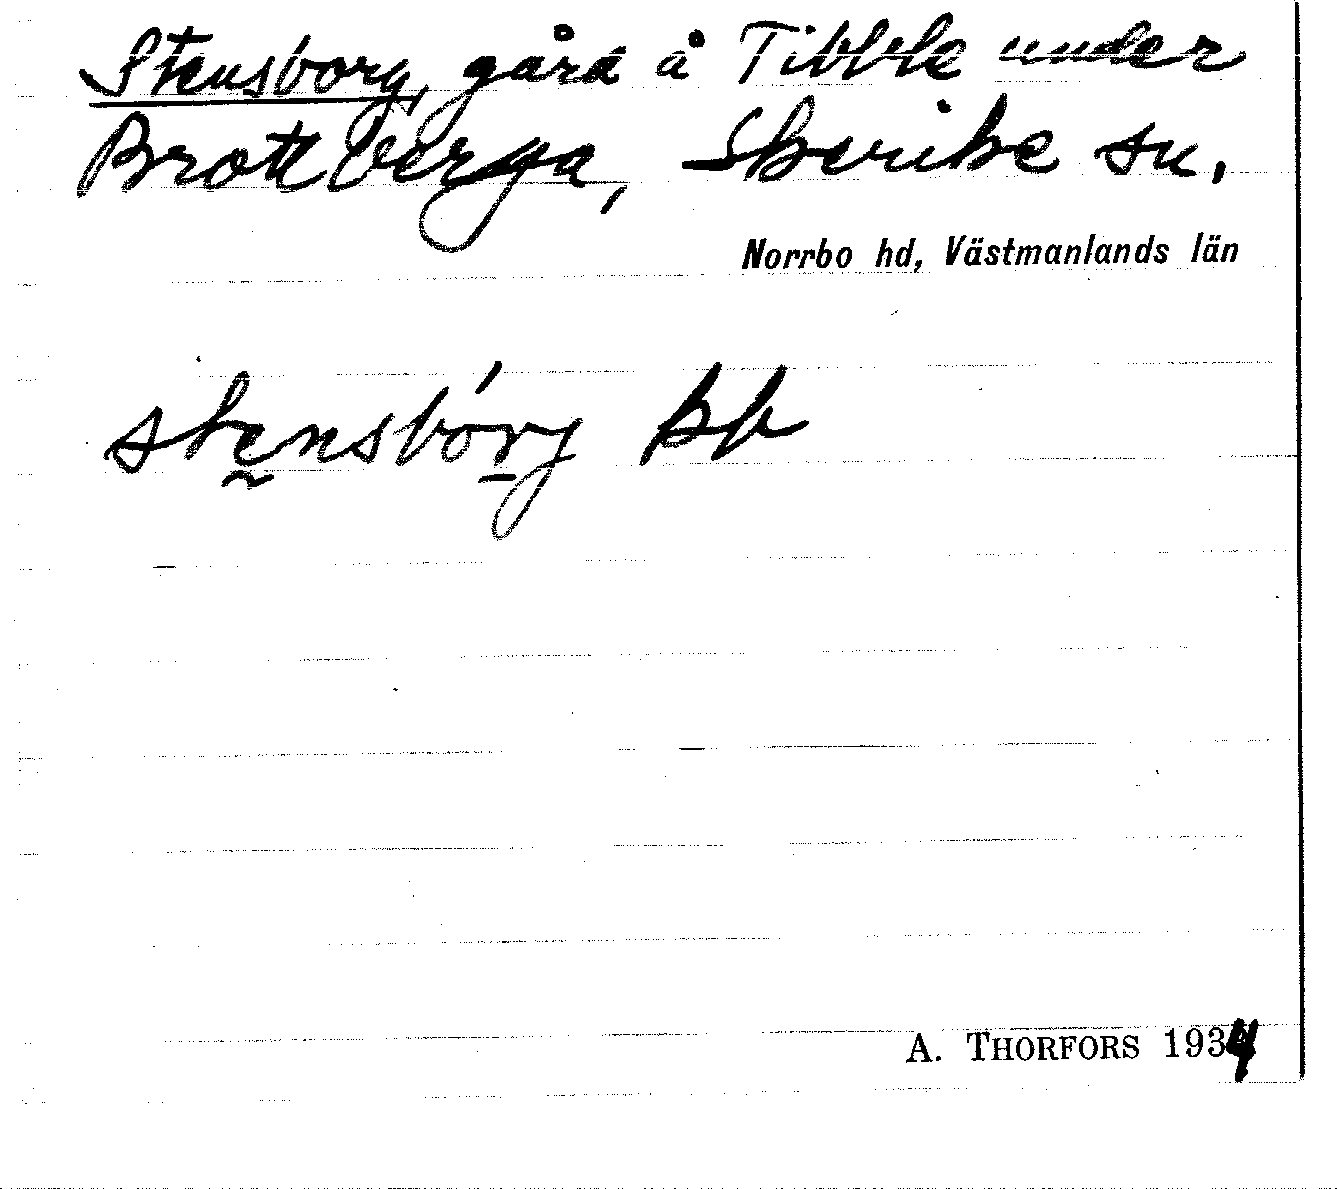 Stensborg, gård å Tibble under
Brottberga, Skerike sn.
Norrbo hd, Västmanlands län
stensbórj
A. THORFORS 1934